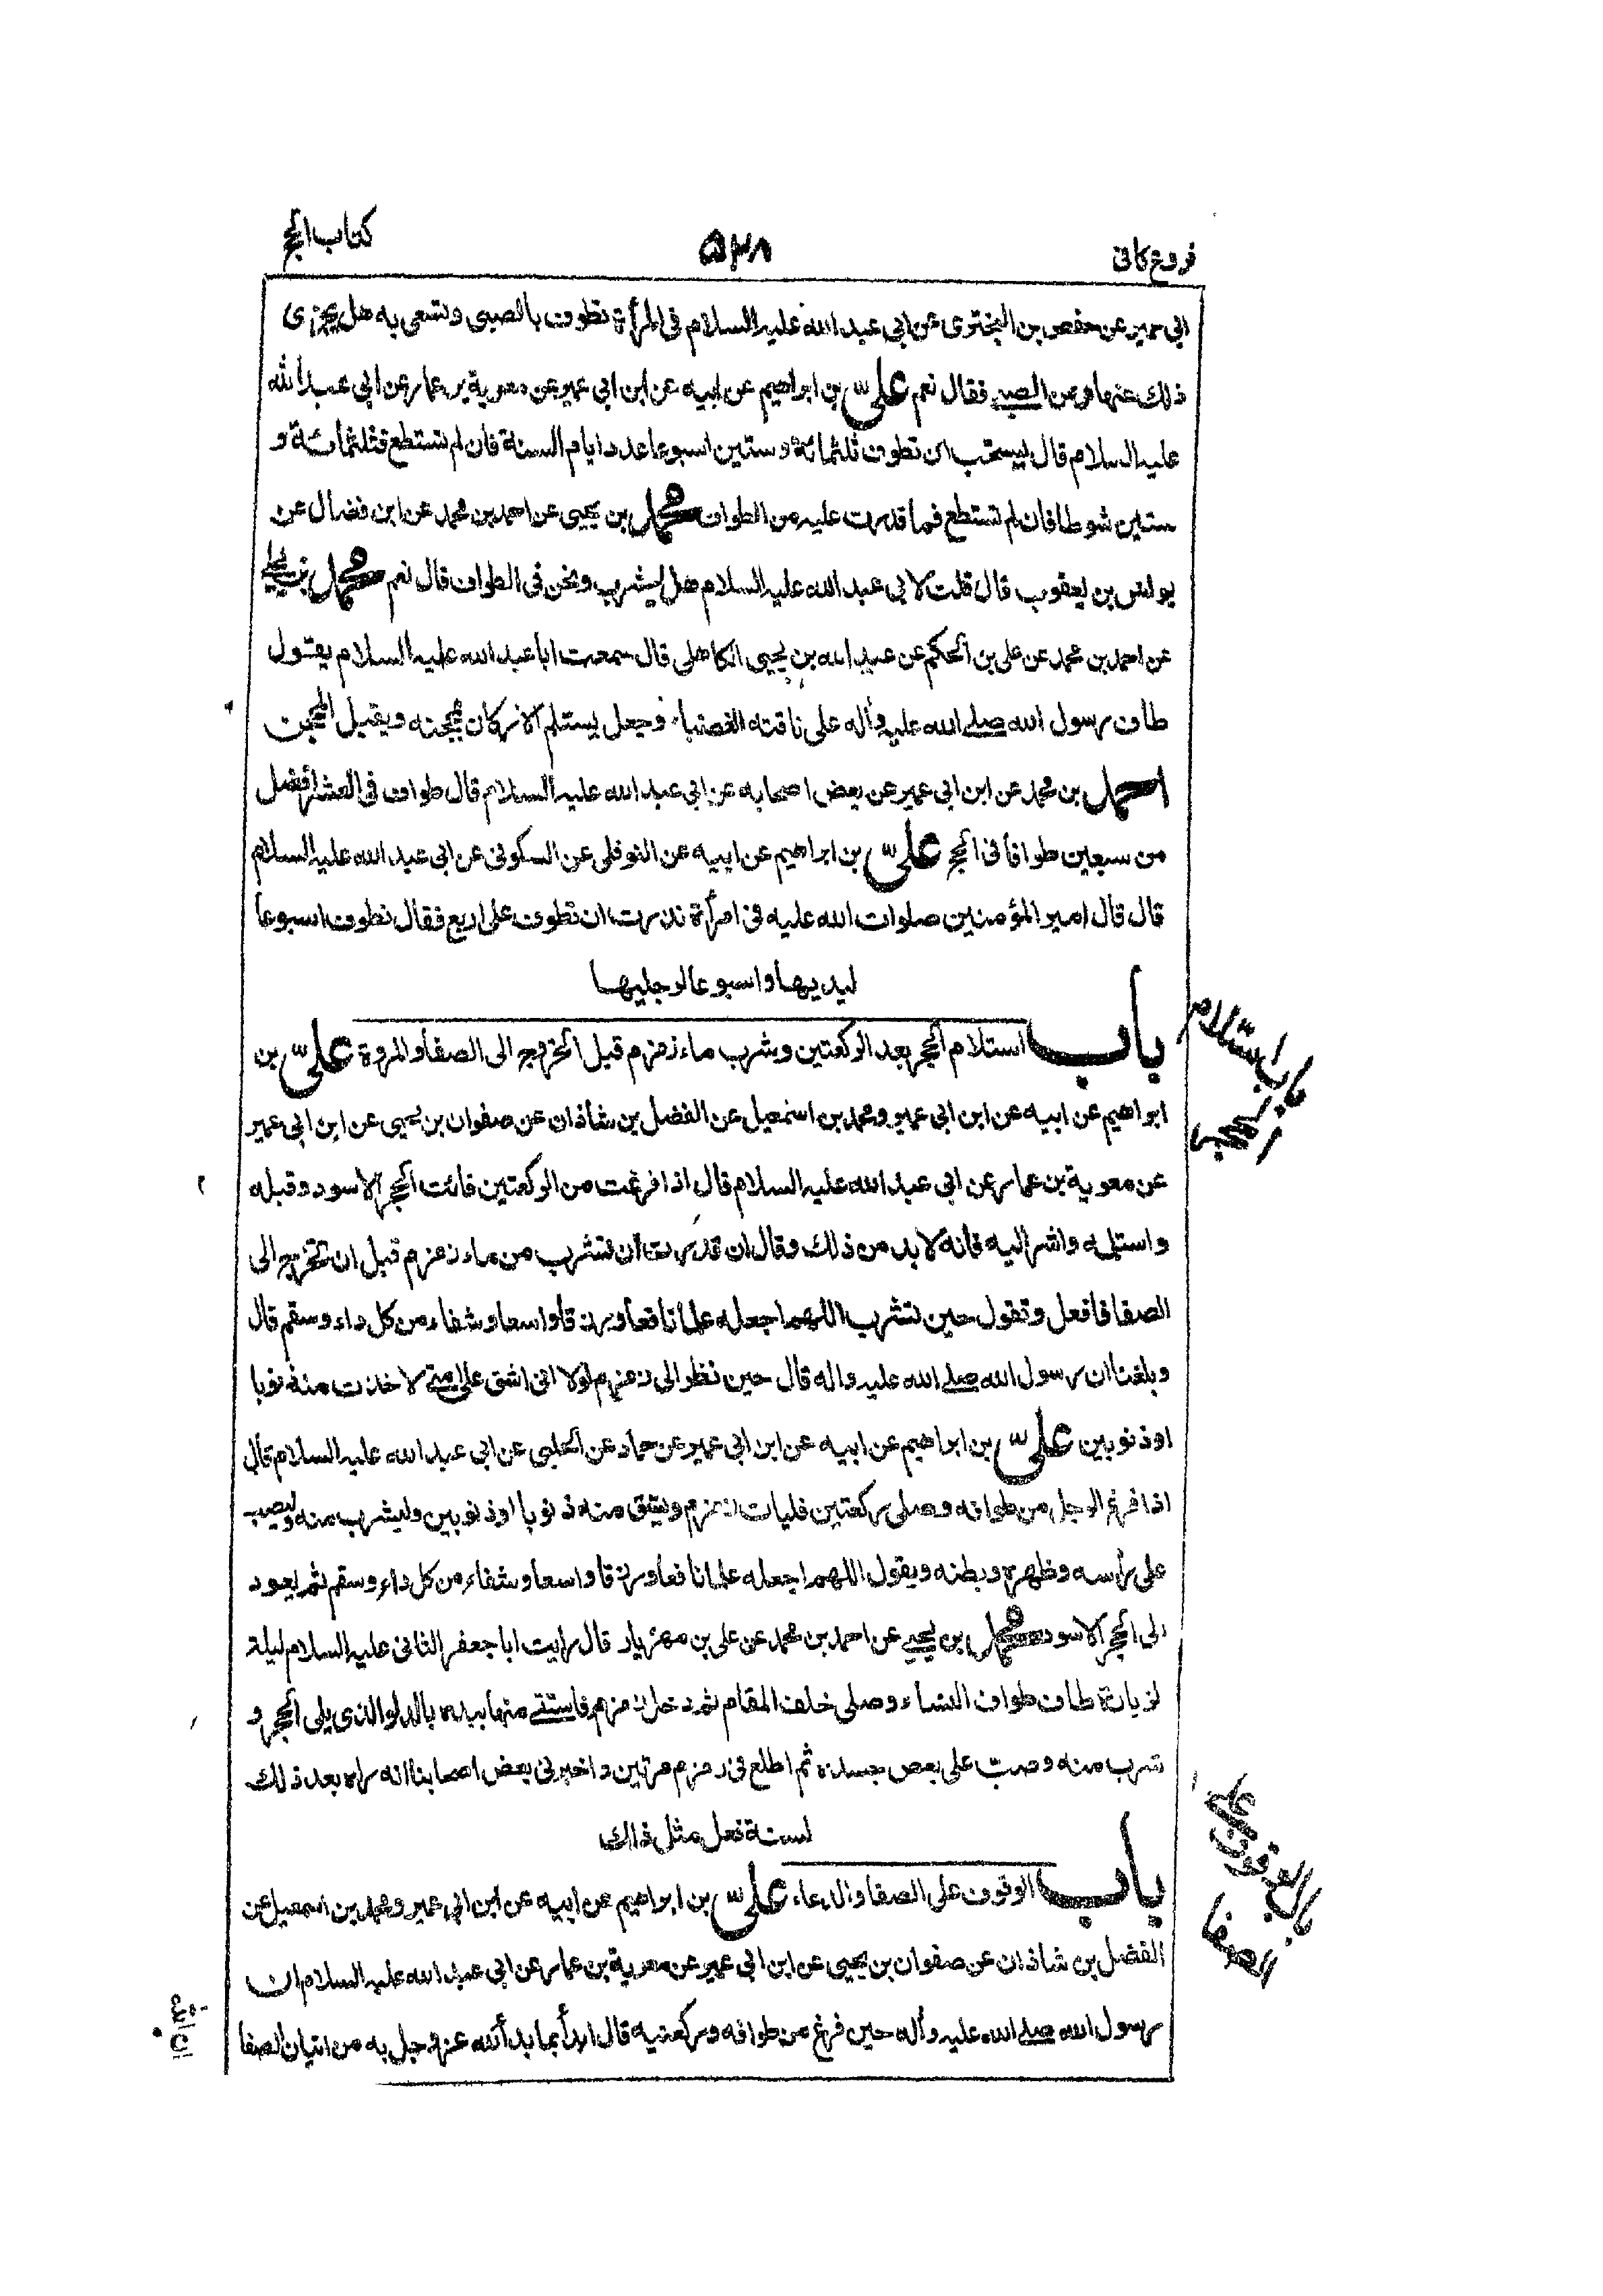 فروع كافى
۵۲۸
كتاب الحج
ابى عمير عن حفص بن البخترى عن ابى عبد الله عليه السلام فى المرأة تطوف بالصبى وتسعى به هل يجزى
ذلك عنها وعن الصبى فقال نعم علىّ بن ابراهيم عن ابيه عن ابن ابى عمير عن معوية بن عمار عن ابى عبد الله
عليه السلام قال يستحب ان تطوف ثلثمائة وستين اسبوعا عدد ايام السنة فان لم تستطع فثلثمائة و
ستين شوطا فان لم تستطع فما قدرت عليه من الطواف محمد بن يحيى عن احمد بن محمد عن ابن فضال عن
يونس بن يعقوب قال قلت لابى عبد الله عليه السلام هل يشرب ونحن فى الطواف قال نعم محمد بن يحيى
عن احمد بن محمد عن على بن الحكم عن عبد الله بن يحيى الكاهلى قال سمعت ابا عبد الله عليه السلام يقول
طاف رسول الله صلى الله عليه وآله على ناقته الغضباء وجعل يستلم الاركان بمحجنه ويقبل المحجن
احمد بن محمد عن ابن ابى عمير عن بعض اصحابه عن ابى عبد الله عليه السلام قال طواف فى العشر أفضل
من سبعين طوافا فى الحج علىّ بن ابراهيم عن ابيه عن النوفلى عن السكونى عن ابى عبد الله عليه السلام
قال قال امير المؤمنين صلوات الله عليه فى امرأة نذرت ان تطوف على اربع فقال تطوف اسبوعا
ليديها واسبوعا لرجليها
باب استلام الحجر بعد الركعتين وشرب ماء زمزم قبل الخروج الى الصفا والمروة علىّ بن
باب استلام
الحجر
ابراهيم عن ابيه عن ابن ابى عمير ومحمد بن اسمعيل عن الفضل بن شاذان عن صفوان بن يحيى عن ابن ابى عمير
عن معوية بن عمار عن ابى عبد الله عليه السلام قال اذا فرغت من الركعتين فائت الحجر الاسود وقبله
واستلمه واشر اليه فانه لا بد من ذلك وقال ان قدرت أن تشرب من ماء زمزم قبل ان تخرج الى
الصفا فافعل وتقول حين تشرب اللهم اجعله علما نافعا ورزقا واسعا وشفاء من كل داء وسقم قال
وبلغنا ان رسول الله صلى الله عليه واله قال حين نظر الى زمزم لولا انى اشق على امتى لاخذت منه ذنوبا
او ذنوبين علىّ بن ابراهيم عن ابيه عن ابن ابى عمير عن حماد عن الحلبى عن ابى عبد الله عليه السلام قال
اذا فرغ الرجل من طوافه وصلى ركعتين فليات زمزم ويستق منه ذنوبا او ذنوبين وليشرب منه وليصب
على رأسه وظهره وبطنه ويقول اللهم اجعله علما نافعا ورزقا واسعا وشفاء من كل داء وسقم ثم يعود
الى الحجر الاسود محمد بن يحيى عن احمد بن محمد عن على بن مهزيار قال رايت ابا جعفر الثانى عليه السلام ليلة
لزيارة طاف طواف النساء وصلى خلف المقام ثم دخل زمزم فاستقى منها بيده بالدلو الذى يلى الحجر و
شرب منه وصبّ على بعض جسده ثم اطلع فى زمزم مرتين واخبرنى بعض اصحابنا انه راه بعد ذلك
لسنة فعل مثل ذلك
باب الوقوف على الصفا والدعاء علىّ بن ابراهيم عن ابيه عن ابن ابى عمير ومحمد بن اسمعيل عن
باب الوقوف على
الصفا
الفضل بن شاذان عن صفوان بن يحيى عن ابن ابى عمير عن معوية بن عمار عن ابى عبد الله عليه السلام ان
رسول الله صلى الله عليه وآله حين فرغ من طوافه وركعتيه قال ابدأ بما بدأ الله عز وجل به من اتيان الصفا
ان الله